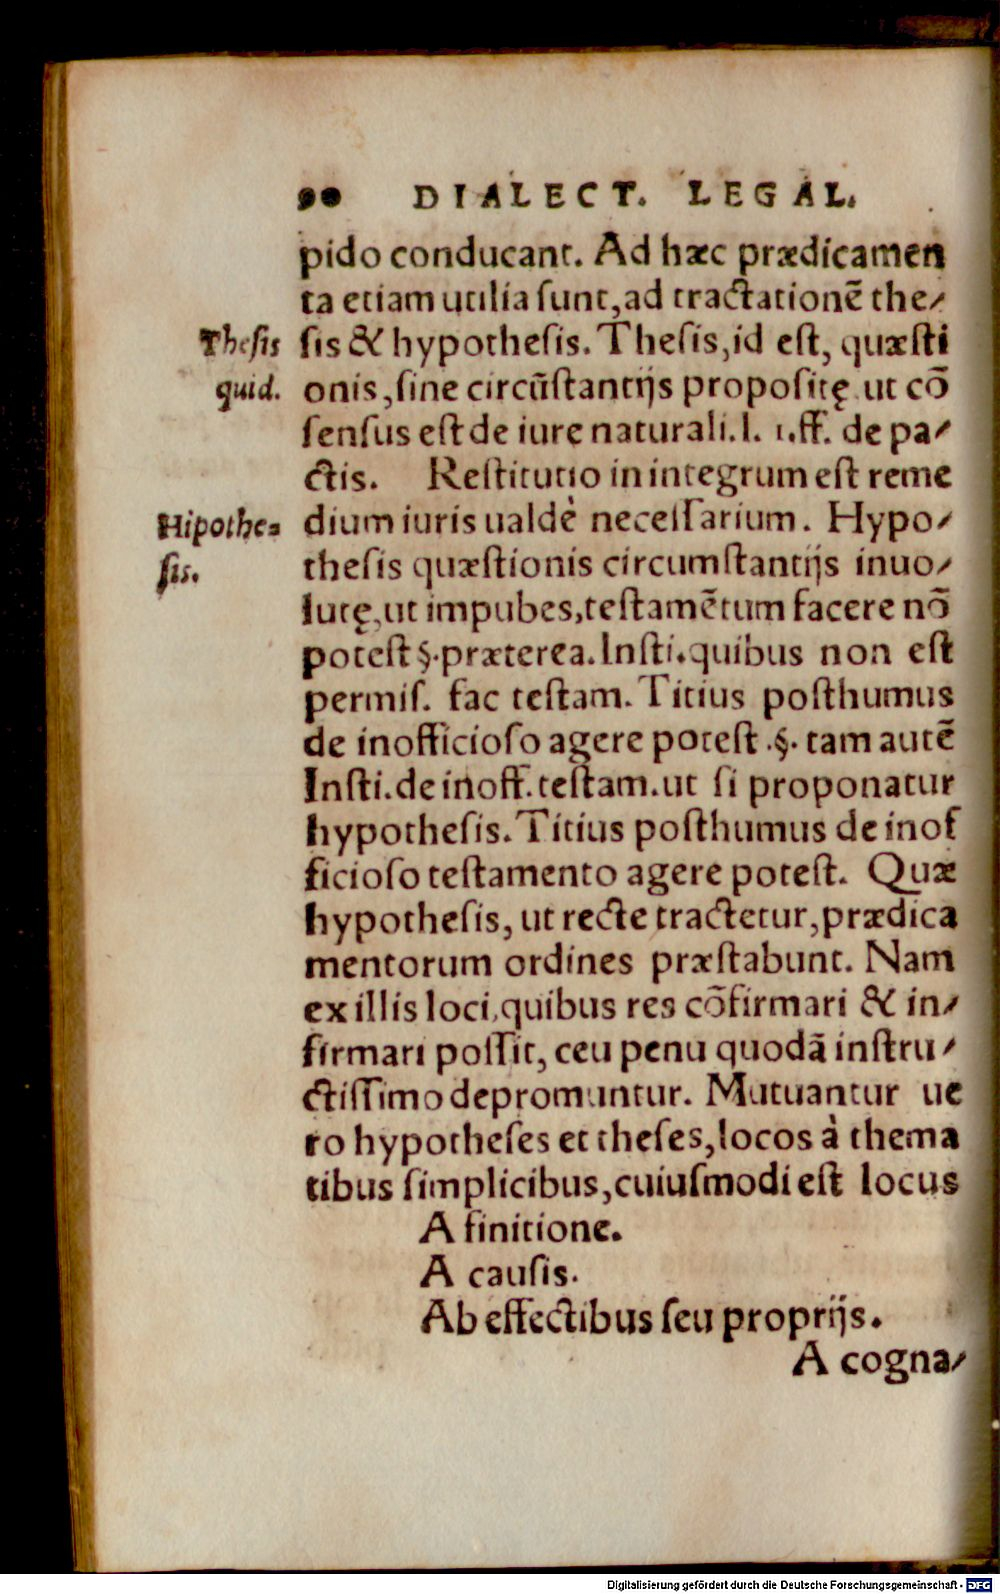 90 DIALECT. LEGAL.
pido conducant. Ad hæc prædicamen
ta etiam utilia sunt, ad tractationē the⸗
Thesis
quid.
sis & hypothesis. Thesis, id est, quæsti
onis, sine circūstantijs propositę ut cō
sensus est de iure naturali. l. 1. ff. de pa⸗
ctis. Restitutio in integrum est reme
Hipothe⸗
sis.
dium iuris ualdè necessarium. Hypo⸗
thesis quæstionis circumstantijs inuo⸗
lutę, ut impubes, testamētum facere nō
potest §. præterea. Insti. quibus non est
permis. fac testam. Titius posthumus
de inofficioso agere potest .§. tam autē
Insti. de inoff. testam. ut si proponatur
hypothesis. Titius posthumus de inof
ficioso testamento agere potest. Quæ
hypothesis, ut recte tractetur, prædica
mentorum ordines præstabunt. Nam
ex illis loci, quibus res cōfirmari & in⸗
firmari possit, ceu penu quodā instru⸗
ctissimo depromuntur. Mutuantur ue
ro hypotheses et theses, locos à thema
tibus simplicibus, cuiusmodi est locus
A finitione.
A causis.
Ab effectibus seu proprijs.
A cogna⸗
Digitalisierung gefördert durch die Deutsche Forschungsgemeinschaft - DFG